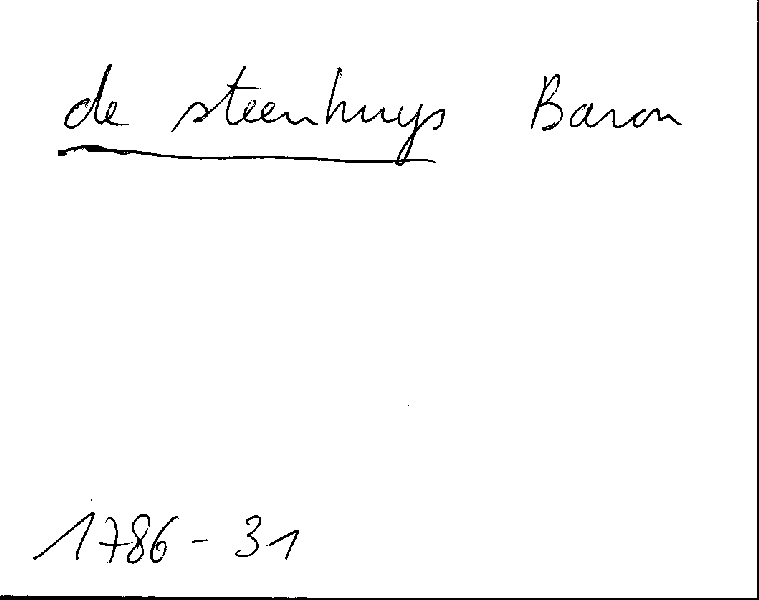 de steenhuys Baron
1786 - 31